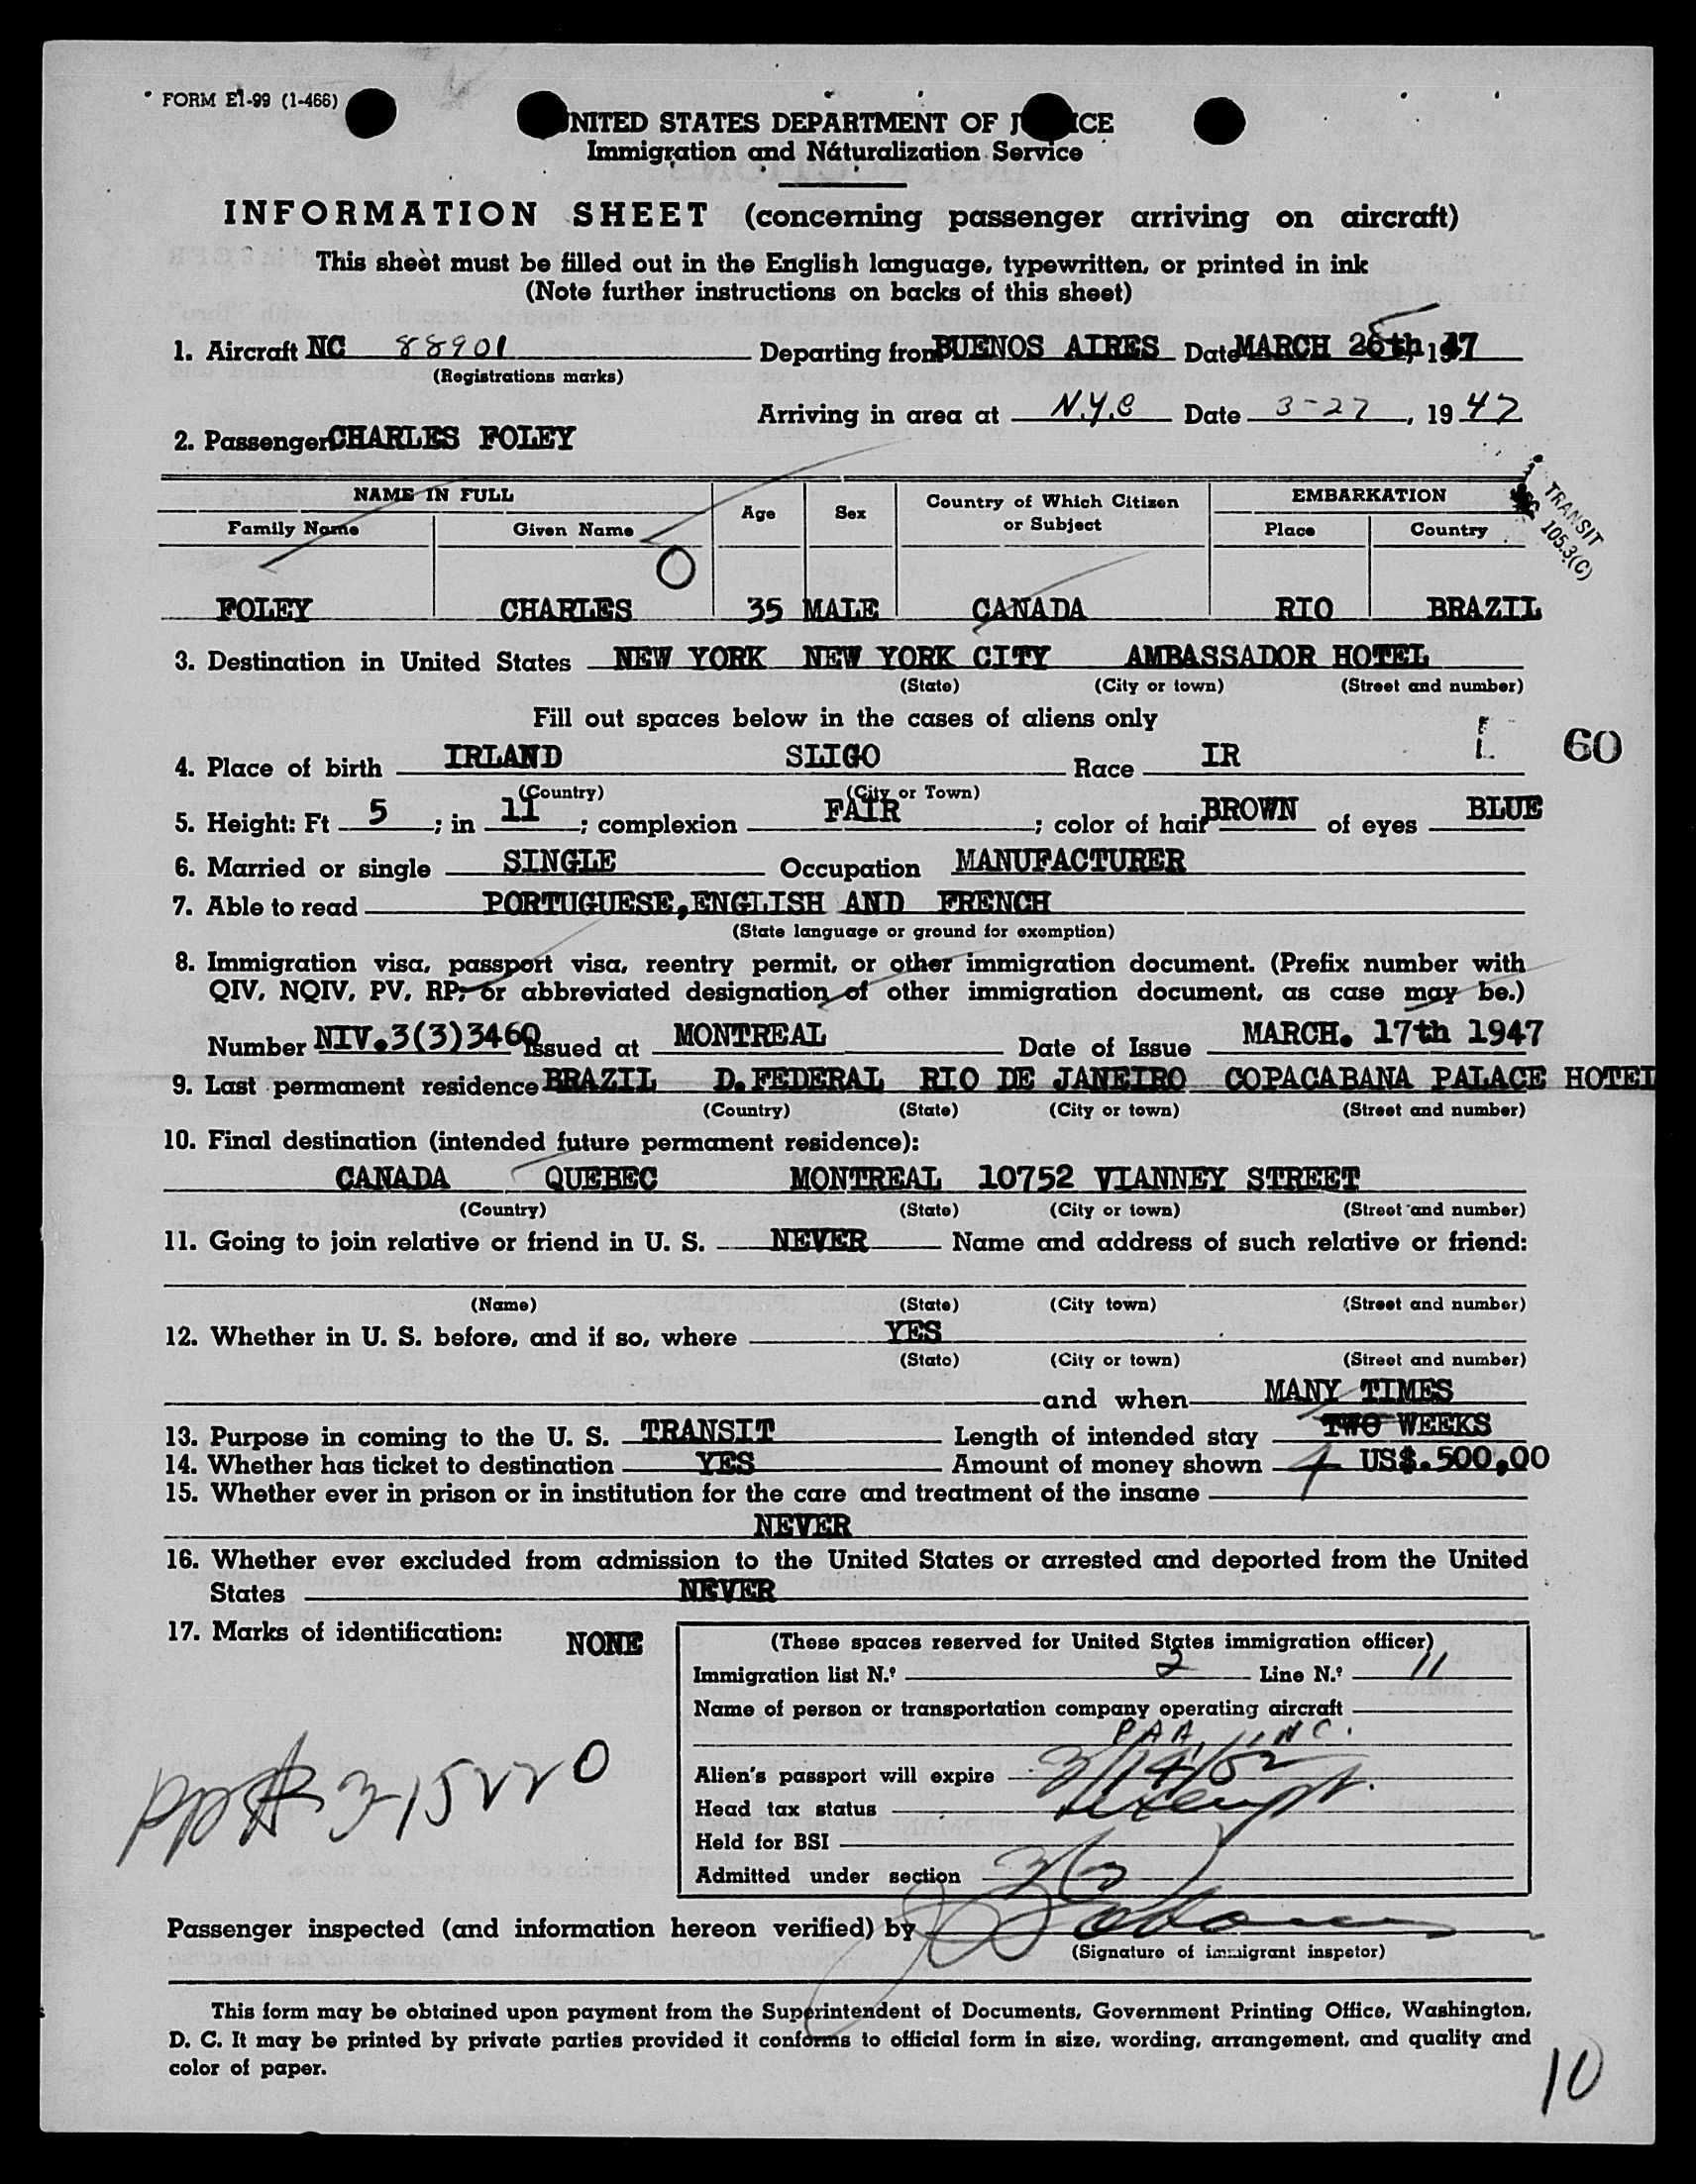 FORM E1-99 (1-466)
NITED STATES DEPARTMENT OF J ICE
Immigration and Naturalization Service
INFORMATION SHEET (concerning passenger arriving on aircraft)
This sheet must be filled out in the English language, typewritten, or printed in ink
(Note further instructions on backs of this sheet)
1. Aircraft NC 88901 Departing from BUENOS AIRES Date MARCH 26th, 1947
(Registrations marks)
Arriving in area at N.Y.C Date 3-27, 1947
2. Passenger CHARLES FOLEY
TRANSIT
105.3(C)
NAME IN FULL Age Sex Country of Which Citizen or Subject EMBARKATION
Family Name Given Name Place Country
O
FOLEY CHARLES 35 MALE CANADA RIO BRAZIL
3. Destination in United States NEW YORK NEW YORK CITY AMBASSADOR HOTEL
(State) (City or town) (Street and number)
Fill out spaces below in the cases of aliens only
60
4. Place of birth IRLAND SLIGO Race IR
(Country) (City or Town)
5. Height: Ft 5 ; in 11 ; complexion FAIR ; color of hair BROWN of eyes BLUE
6. Married or single SINGLE Occupation MANUFACTURER
7. Able to read PORTUGUESE,ENGLISH AND FRENCH
(State language or ground for exemption)
8. Immigration visa, passport visa, reentry permit, or other immigration document. (Prefix number with
QIV, NQIV, PV, RP, or abbreviated designation of other immigration document, as case may be.)
Number NIV.3(3)3460 Issued at MONTREAL Date of Issue MARCH. 17th 1947
9. Last permanent residence BRAZIL D.FEDERAL RIO DE JANEIRO COPACABANA PALACE HOTEL
(Country) (State) (City or town) (Street and number)
10. Final destination (intended future permanent residence):
CANADA QUEBEC MONTREAL 10752 VIANNEY STREET
(Country) (State) (City or town) (Street and number)
11. Going to join relative or friend in U. S. NEVER Name and address of such relative or friend:
(Name) (State) (City town) (Street and number)
12. Whether in U. S. before, and if so, where YES
(State) (City or town) (Street and number)
and when MANY TIMES
13. Purpose in coming to the U. S. TRANSIT Length of intended stay TWO WEEKS
14. Whether has ticket to destination YES Amount of money shown US$.500,00
15. Whether ever in prison or in institution for the care and treatment of the insane
NEVER
16. Whether ever excluded from admission to the United States or arrested and deported from the United
States NEVER
17. Marks of identification: NONE
(These spaces reserved for United States immigration officer)
Immigration list N.º 2 Line N.º 11
Name of person or transportation company operating aircraft
PAA, INC.
Alien's passport will expire 3/14/52
Head tax status Exempt
Held for BSI
Admitted under section 3(3)
pp# 315220
Passenger inspected (and information hereon verified) by
(Signature of immigrant inspetor)
This form may be obtained upon payment from the Superintendent of Documents, Government Printing Office, Washington,
D. C. It may be printed by private parties provided it conforms to official form in size, wording, arrangement, and quality and
color of paper.
10